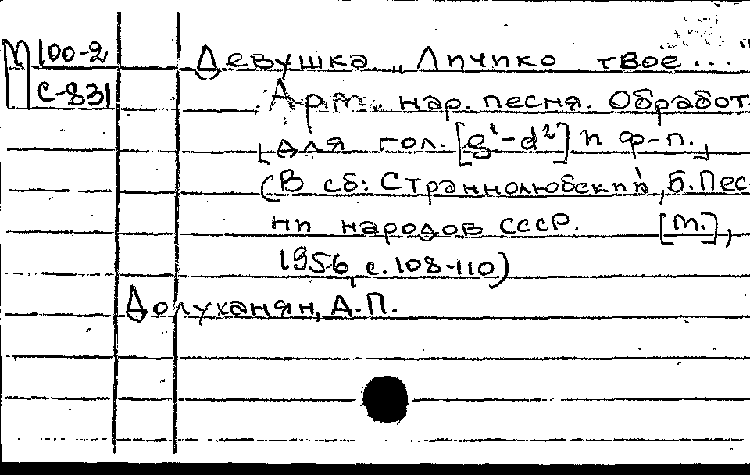 М 100-2
С-831
Девушка „Личико твое..."
Арм. нар. песня. Обработ
[для гол. [g¹-d²] и ф-п.]
(В сб: Страннолюбский, Б. Пес
ни народов СССР. [М.],
1956, с. 108-110)
Долуханян, А.П.